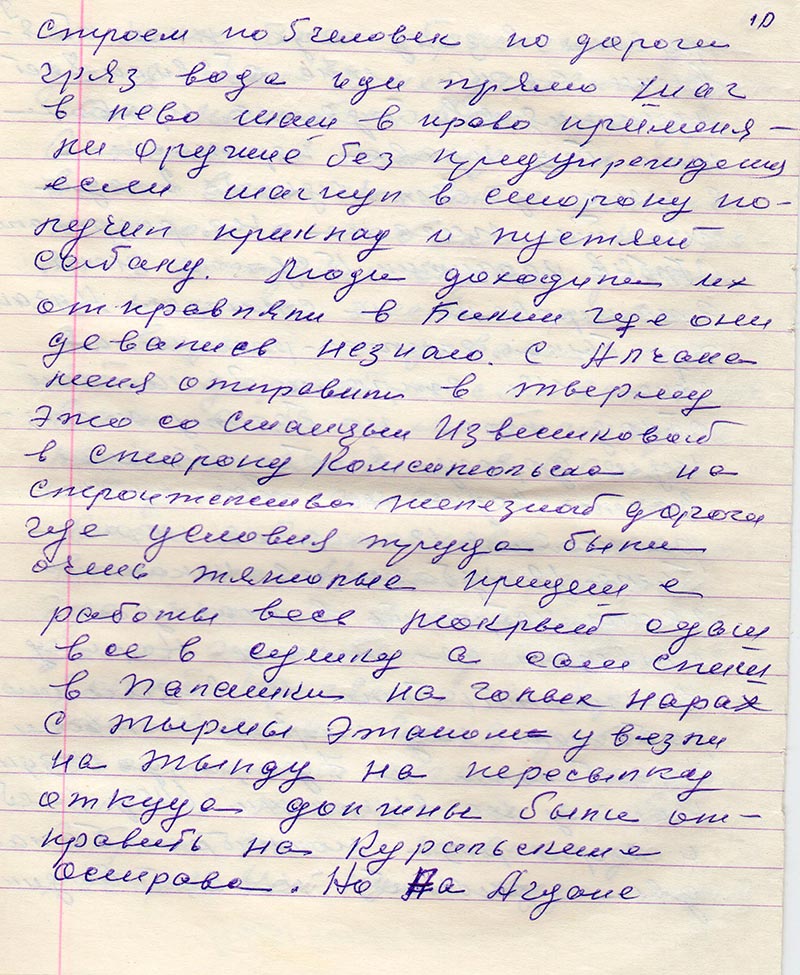 10
строем по 5 человек по дороги
гряз вода иди прямо шаг
в лево шаг в право применя-
ли оружие без предупреждения
если шагнул в сторону по-
лучил приклад и пустят
собаку. Люди доходили их
отправляли в Бикин где они
девались незнаю. С Алчана
меня отправили в тырму
это со Станцыи Известковой
в сторону Комсомольска на
строительства железной дороги
где условия труда были
очень тяжолые придеш с
работы весь мокрый одеш
все в сушку а сам спиш
в палатки на голых нарах
С тырмы этапом увезли
на тынду на пересылку
откуда должны были от-
править на Курильские
острова. Но на Агдане